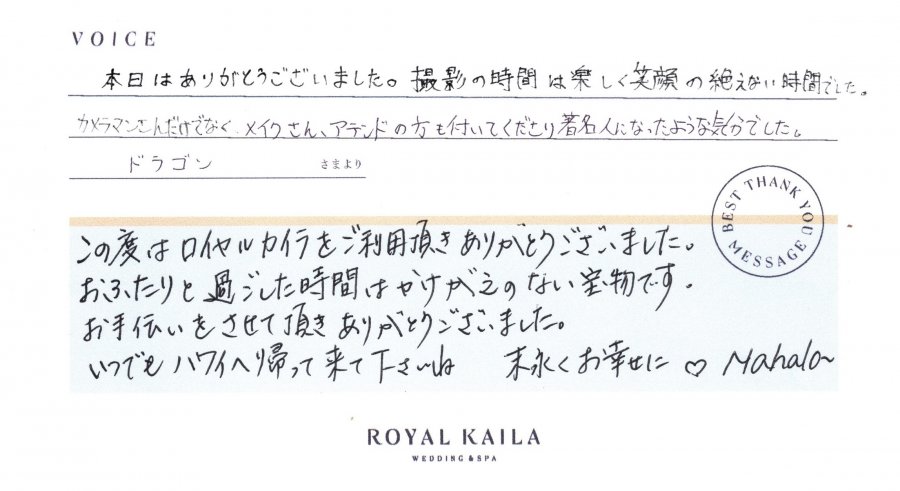 VOICE
本日はありがとうございました。撮影の時間は楽しく笑顔の絶えない時間でした。
カメラマンさんだけでなく、メイクさん、アテンドの方も付いてくださり著名人になったような気分でした。
ドラゴン さまより
BEST THANK YOU MESSAGE
この度はロイヤルカイラをご利用頂きありがとうございました。
おふたりと過ごした時間はかけがえのない宝物です。
お手伝いをさせて頂きありがとうございました。
いつでもハワイへ帰って来て下さいね 末永くお幸せに ♡ Mahalo~
ROYAL KAILA
WEDDING & SPA